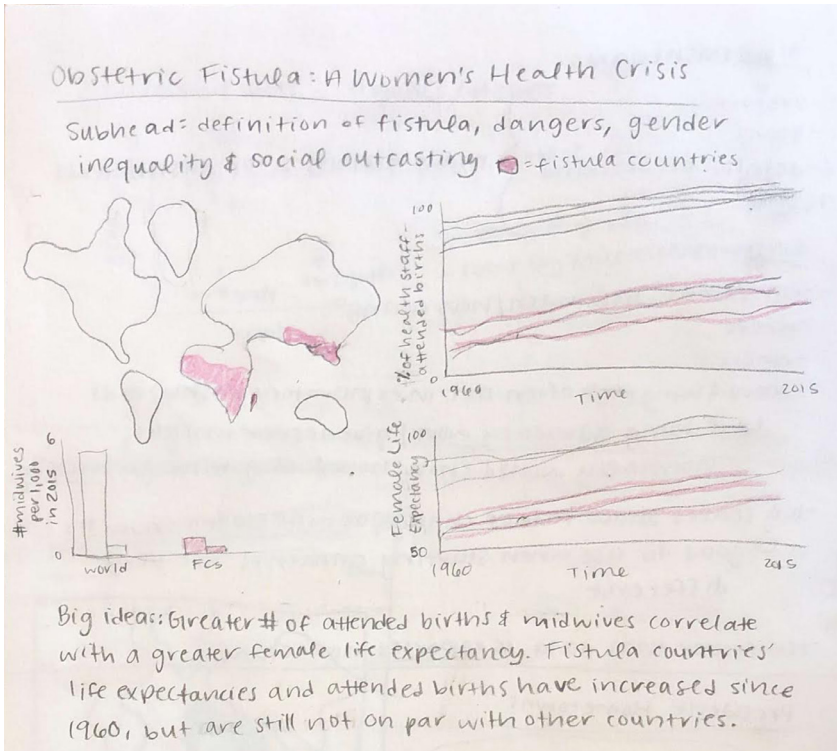 Obstetric Fistula: A Women's Health Crisis
Subhead: definition of fistula, dangers, gender
inequality & social outcasting
=fistula countries
% of health staff-
attended births
100
0
1960
Time
2015
#midwives
per 1,000
in 2015
6
0
world
FCs
Female Life
Expectancy
100
50
1960
Time
2015
Big ideas: Greater # of attended births & midwives correlate
with a greater female life expectancy. Fistula countries'
life expectancies and attended births have increased since
1960, but are still not on par with other countries.